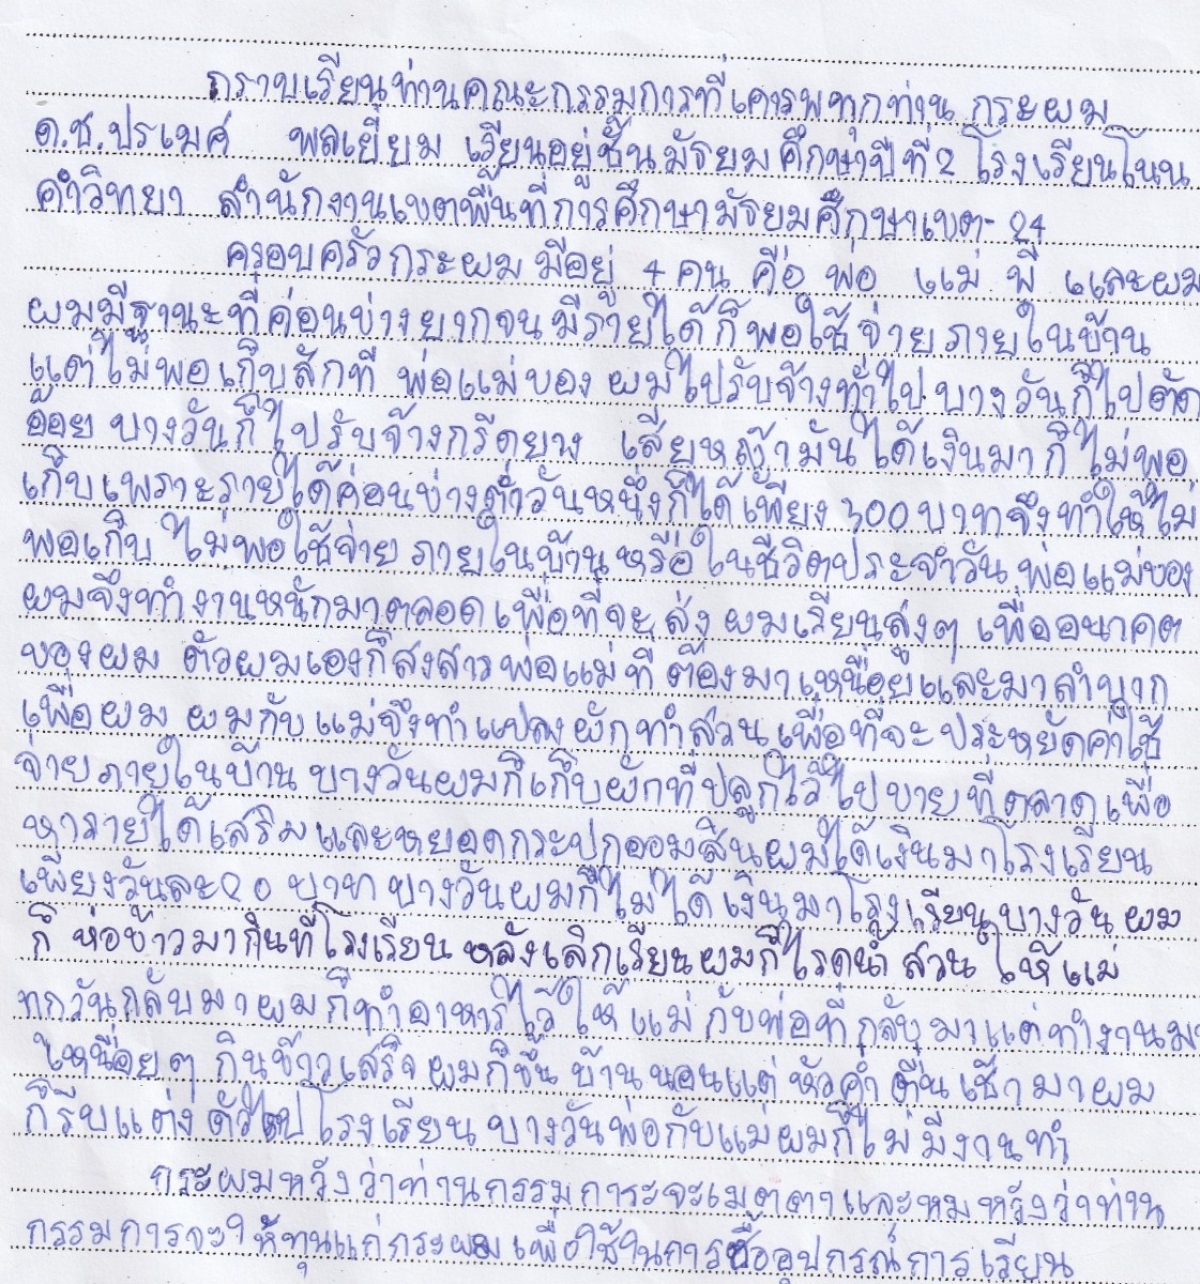 กราบเรียนท่านคณะกรรมการที่เคารพทุกท่าน กระผม
ด.ช.ปรเมศ พลเยี่ยม เรียนอยู่ชั้นมัธยมศึกษาปีที่2 โรงเรียนโนน
คำวิทยา สำนักงานเขตพื้นที่การศึกษามัธยมศึกษาเขต-24
ครอบครัวกระผม มีอยู่ 4 คน คือ พ่อ แม่ พี่ และผม
ผมมีฐานะที่ค่อนข่างยากจน มีรายได้ก็พอใช้จ่ายภายในบ้าน
แต่ไม่พอเก็บสักที พ่อแม่ของ ผมไปรับจ้างทั่วไป บางวันก็ไปตัด
อ้อย บางวันก็ไปรับจ้างกรีดยาง เสียหญ้ามันได้เงินมาก็ไม่พอ
เก็บเพราะรายได้ค่อนข่างต่ำวันหนึ่งก็ได้เพียง 300 บาทจึงทำให้ไม่
พอเก็บ ไม่พอใช้จ่าย ภายในบ้านหรือในชีวิตประจำวัน พ่อแม่ของ
ผมจึงทำงานหนักมาตลอดเพื่อที่จะส่ง ผมเรียนสูงๆ เพื่ออนาคต
ของผม ตัวผมเองก็สงสารพ่อแม่ที่ ต้องมาเหนื่อยและมาลำบาก
เพื่อผม ผมกับแม่จึงทำแปลงผักทำสวนเพื่อที่จะประหยัดค่าใช้
จ่ายภายในบ้าน บางวันผมก็เก็บผักที่ปลูกไว้ไปขายที่ตลาดเพื่อ
หารายได้เสริมและหยอดกระปุกออมสินผมได้เงินมาโรงเรียน
เพียงวันละ20 บาท บางวันผมก็ไม่ได้เงินมาโรงเรียนบางวัน ผม
ก็ ห่อข้าวมากินที่โรงเรียน หลังเลิกเรียนผมก็ไรดน้ำสวนให้แม่
ทกวันกลับมาผมก็ทำอาหารไว้ให้แม่กับพ่อที่กลับมาแต่ทำงานมา
ไหนื่อยๆ กินข้าวเสร็จผมก็ขึ้นบ้านนอนแต่ หัวค่ำ ตื่นเช้ามาผม
ก็รีบแต่งตัวไปโรงเรียนบางวันพ่อกับแม่ผมก็ไม่มีงานทำ
กระผมหวังว่าท่านกรรมการะจะเมตตาและหมหวังว่าท่าน
กรรมการจะให้ทุนแก่กระผมเพื่อใช้ในการซื้ออุปกรณ์การเรียน